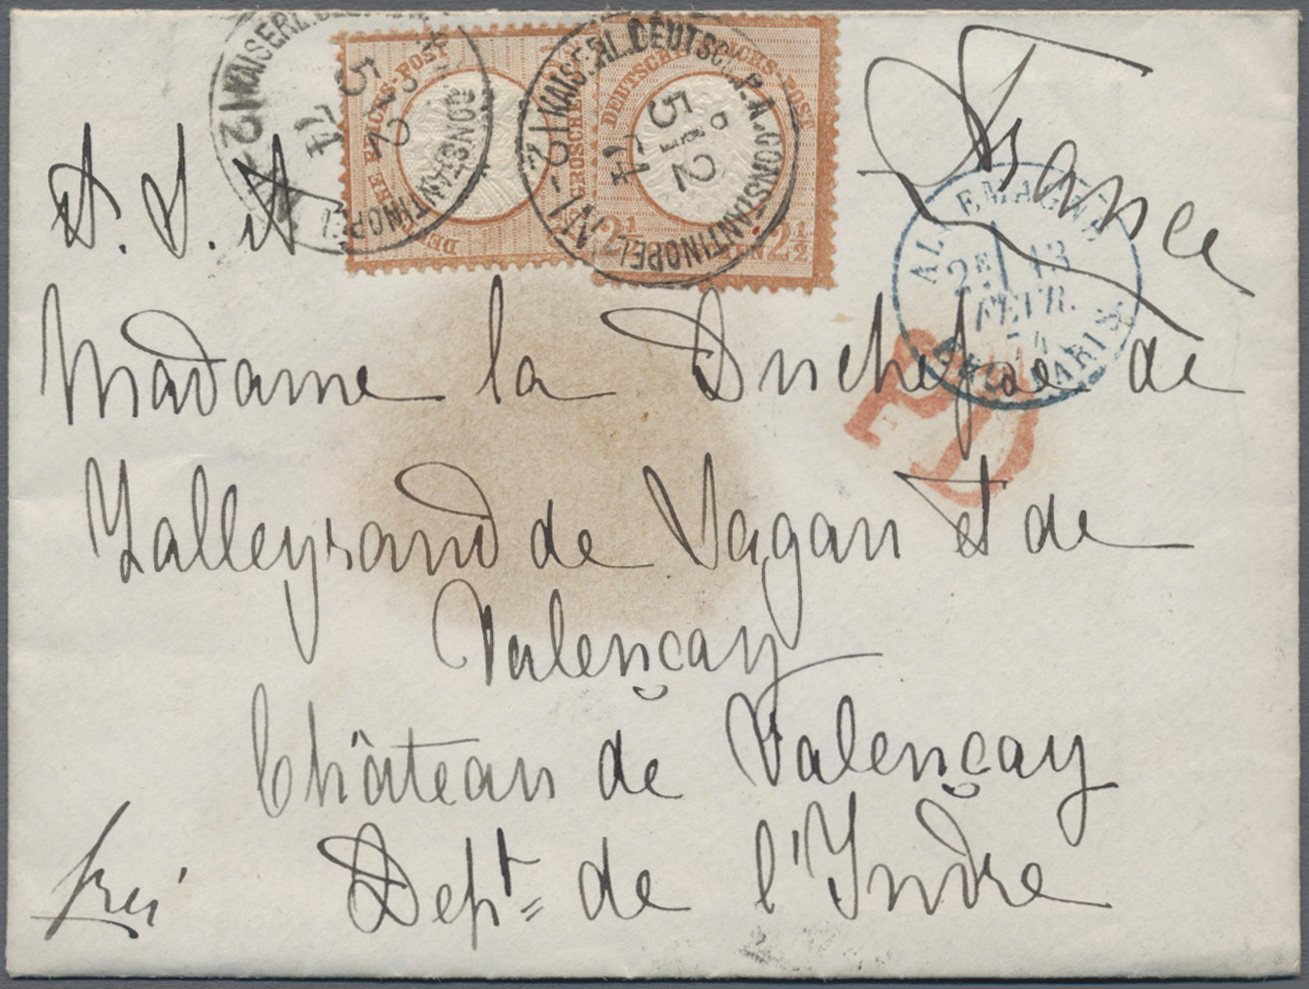 KAISERL. DEUTSCH. P. A. CONSTANTINOPEL 11-12
5 2
74
DEUTSCHE REICHS-POST
GROSCHEN
KAISERL. DEUTSCH. P. A. CONSTANTINOPEL 11-12
5 2
74
DEUTSCHE REICHS-POST
2½ 2½
France
A. S. A
ALLEMAGNE
2E 13
FEVR.
74
PARIS
PD
Madame la Duchesse de
Talleyrand de Sagan et de
Valençay
Château de Valençay
frei
Dept= de l'Indre